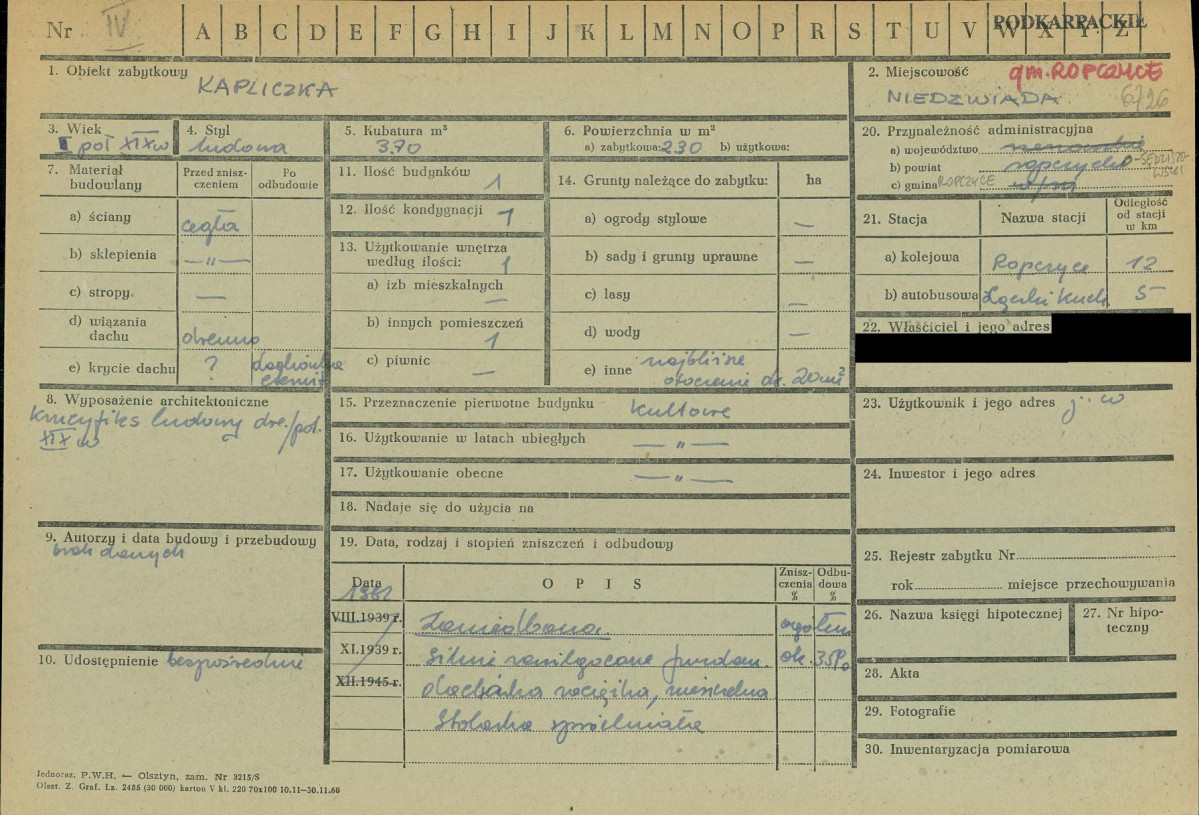 Nr IV A B C D E F G H I J K L M N O P R S T U V W X Y Z PODKARPACKIE
1. Obiekt zabytkowy KAPLICZKA
2. Miejscowość gm. ROPCZYCE
NIEDZWIADA 6726
3. Wiek
I poł XIX w
4. Styl
ludowa
5. Kubatura m³
3.70
6. Powierzchnia w m²
a) zabytkowa: 2.30 b) użytkowa:
7. Materiał budowlany
Przed zniszczeniem
Po odbudowie
a) ściany cegła
b) sklepienia — „ —
c) stropy. —
d) wiązania dachu drewno
e) krycie dachu ? dachówka eternit
8. Wyposażenie architektoniczne
Krucyfiks ludowy dre. / poł.
XIX w
9. Autorzy i data budowy i przebudowy
brak danych
10. Udostępnienie bezpośrednie
11. Ilość budynków 1
12. Ilość kondygnacji 1
13. Użytkowanie wnętrza
według ilości: 1
a) izb mieszkalnych —
b) innych pomieszczeń 1
c) piwnic —
14. Grunty należące do zabytku: ha
a) ogrody stylowe —
b) sady i grunty uprawne —
c) lasy —
d) wody —
e) inne najbliższe
otoczenie ok. 20 m²
15. Przeznaczenie pierwotne budynku kultowe
16. Użytkowanie w latach ubiegłych — „ —
17. Użytkowanie obecne — „ —
18. Nadaje się do użycia na
19. Data, rodzaj i stopień zniszczeń i odbudowy
Data OPIS Zniszczenia % Odbudowa %
VIII.1939 r. Zaniedbana. ogółem
XI.1939 r. Silnie zawilgocone fundam. ok. 35%
XII.1945 r. dachówka nieszczelna
Stolarka spróchniała
20. Przynależność administracyjna
a) województwo
b) powiat ropczycko-SĘDZISZOWSKI
c) gmina ROPCZYCE
21. Stacja Nazwa stacji Odległość od stacji w km
a) kolejowa Ropczyce 12
b) autobusowa Łączki Kuch. 5
22. Właściciel i jego adres
23. Użytkownik i jego adres j. w
24. Inwestor i jego adres
25. Rejestr zabytku Nr
rok miejsce przechowywania
26. Nazwa księgi hipotecznej
27. Nr hipoteczny
28. Akta
29. Fotografie
30. Inwentaryzacja pomiarowa
Jednoraz. P.W.H. — Olsztyn, zam. Nr 3215/S
Olszt. Z. Graf. Lz. 2485 (30 000) karton V kl. 220 70x100 10.11—30.11.60